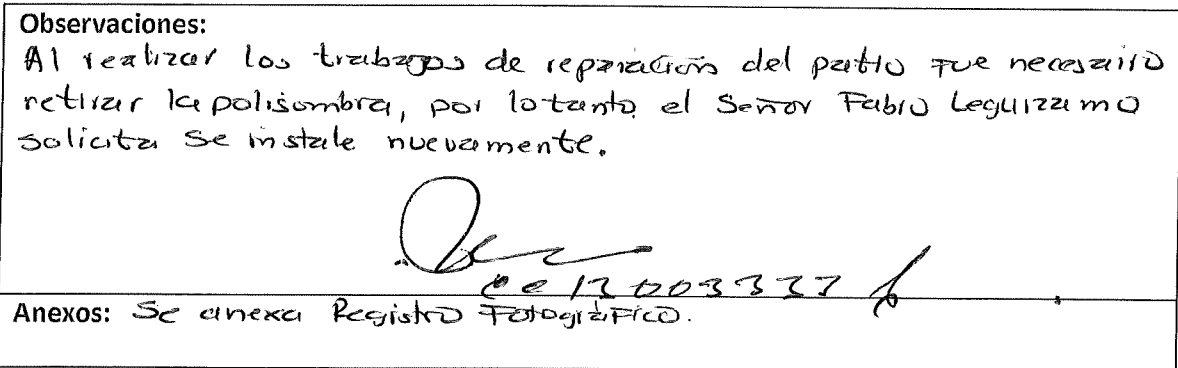 Observaciones:
Al realizar los trabajos de reparación del patio fue necesario
retirar la polisombra, por lo tanto, el Señor Fabio Leguizamo
solicita se instale nuevamente.
Anexos: Se anexa Registro Fotográfico.